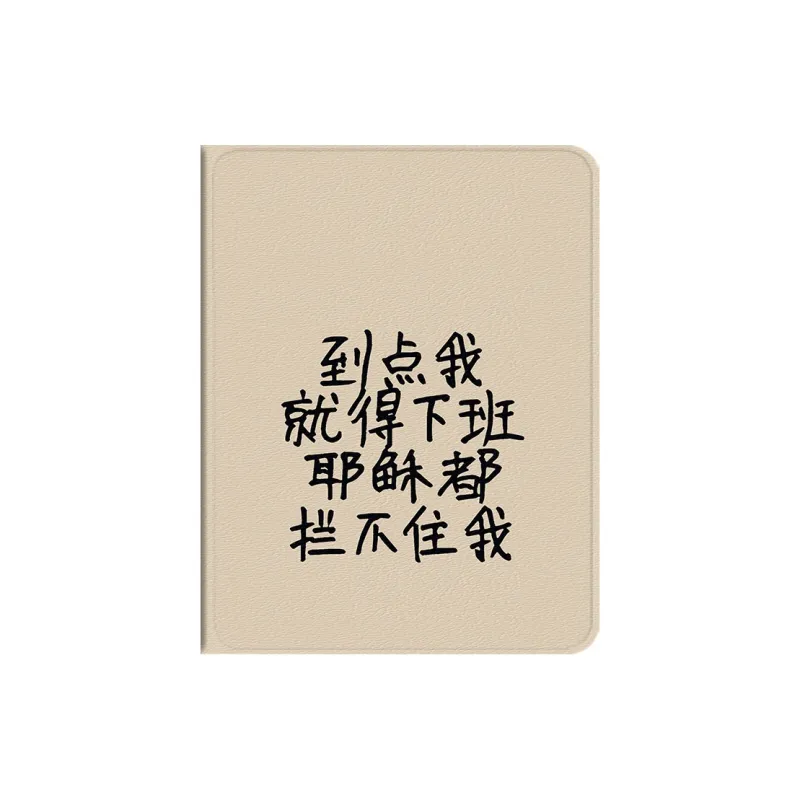 到点我
就得下班
耶稣都
拦不住我